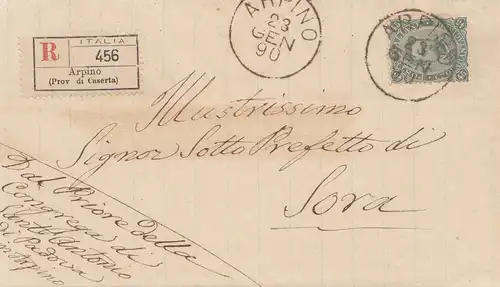 ITALIA
R
456
Arpino
(Prov di Caserta)
ARPINO
23
GEN
90
Illustrissimo
Signor Sotto Prefetto di
Sora
Dal Priore della
Congrega di
Sant'Antonio
di Padova
in Arpino